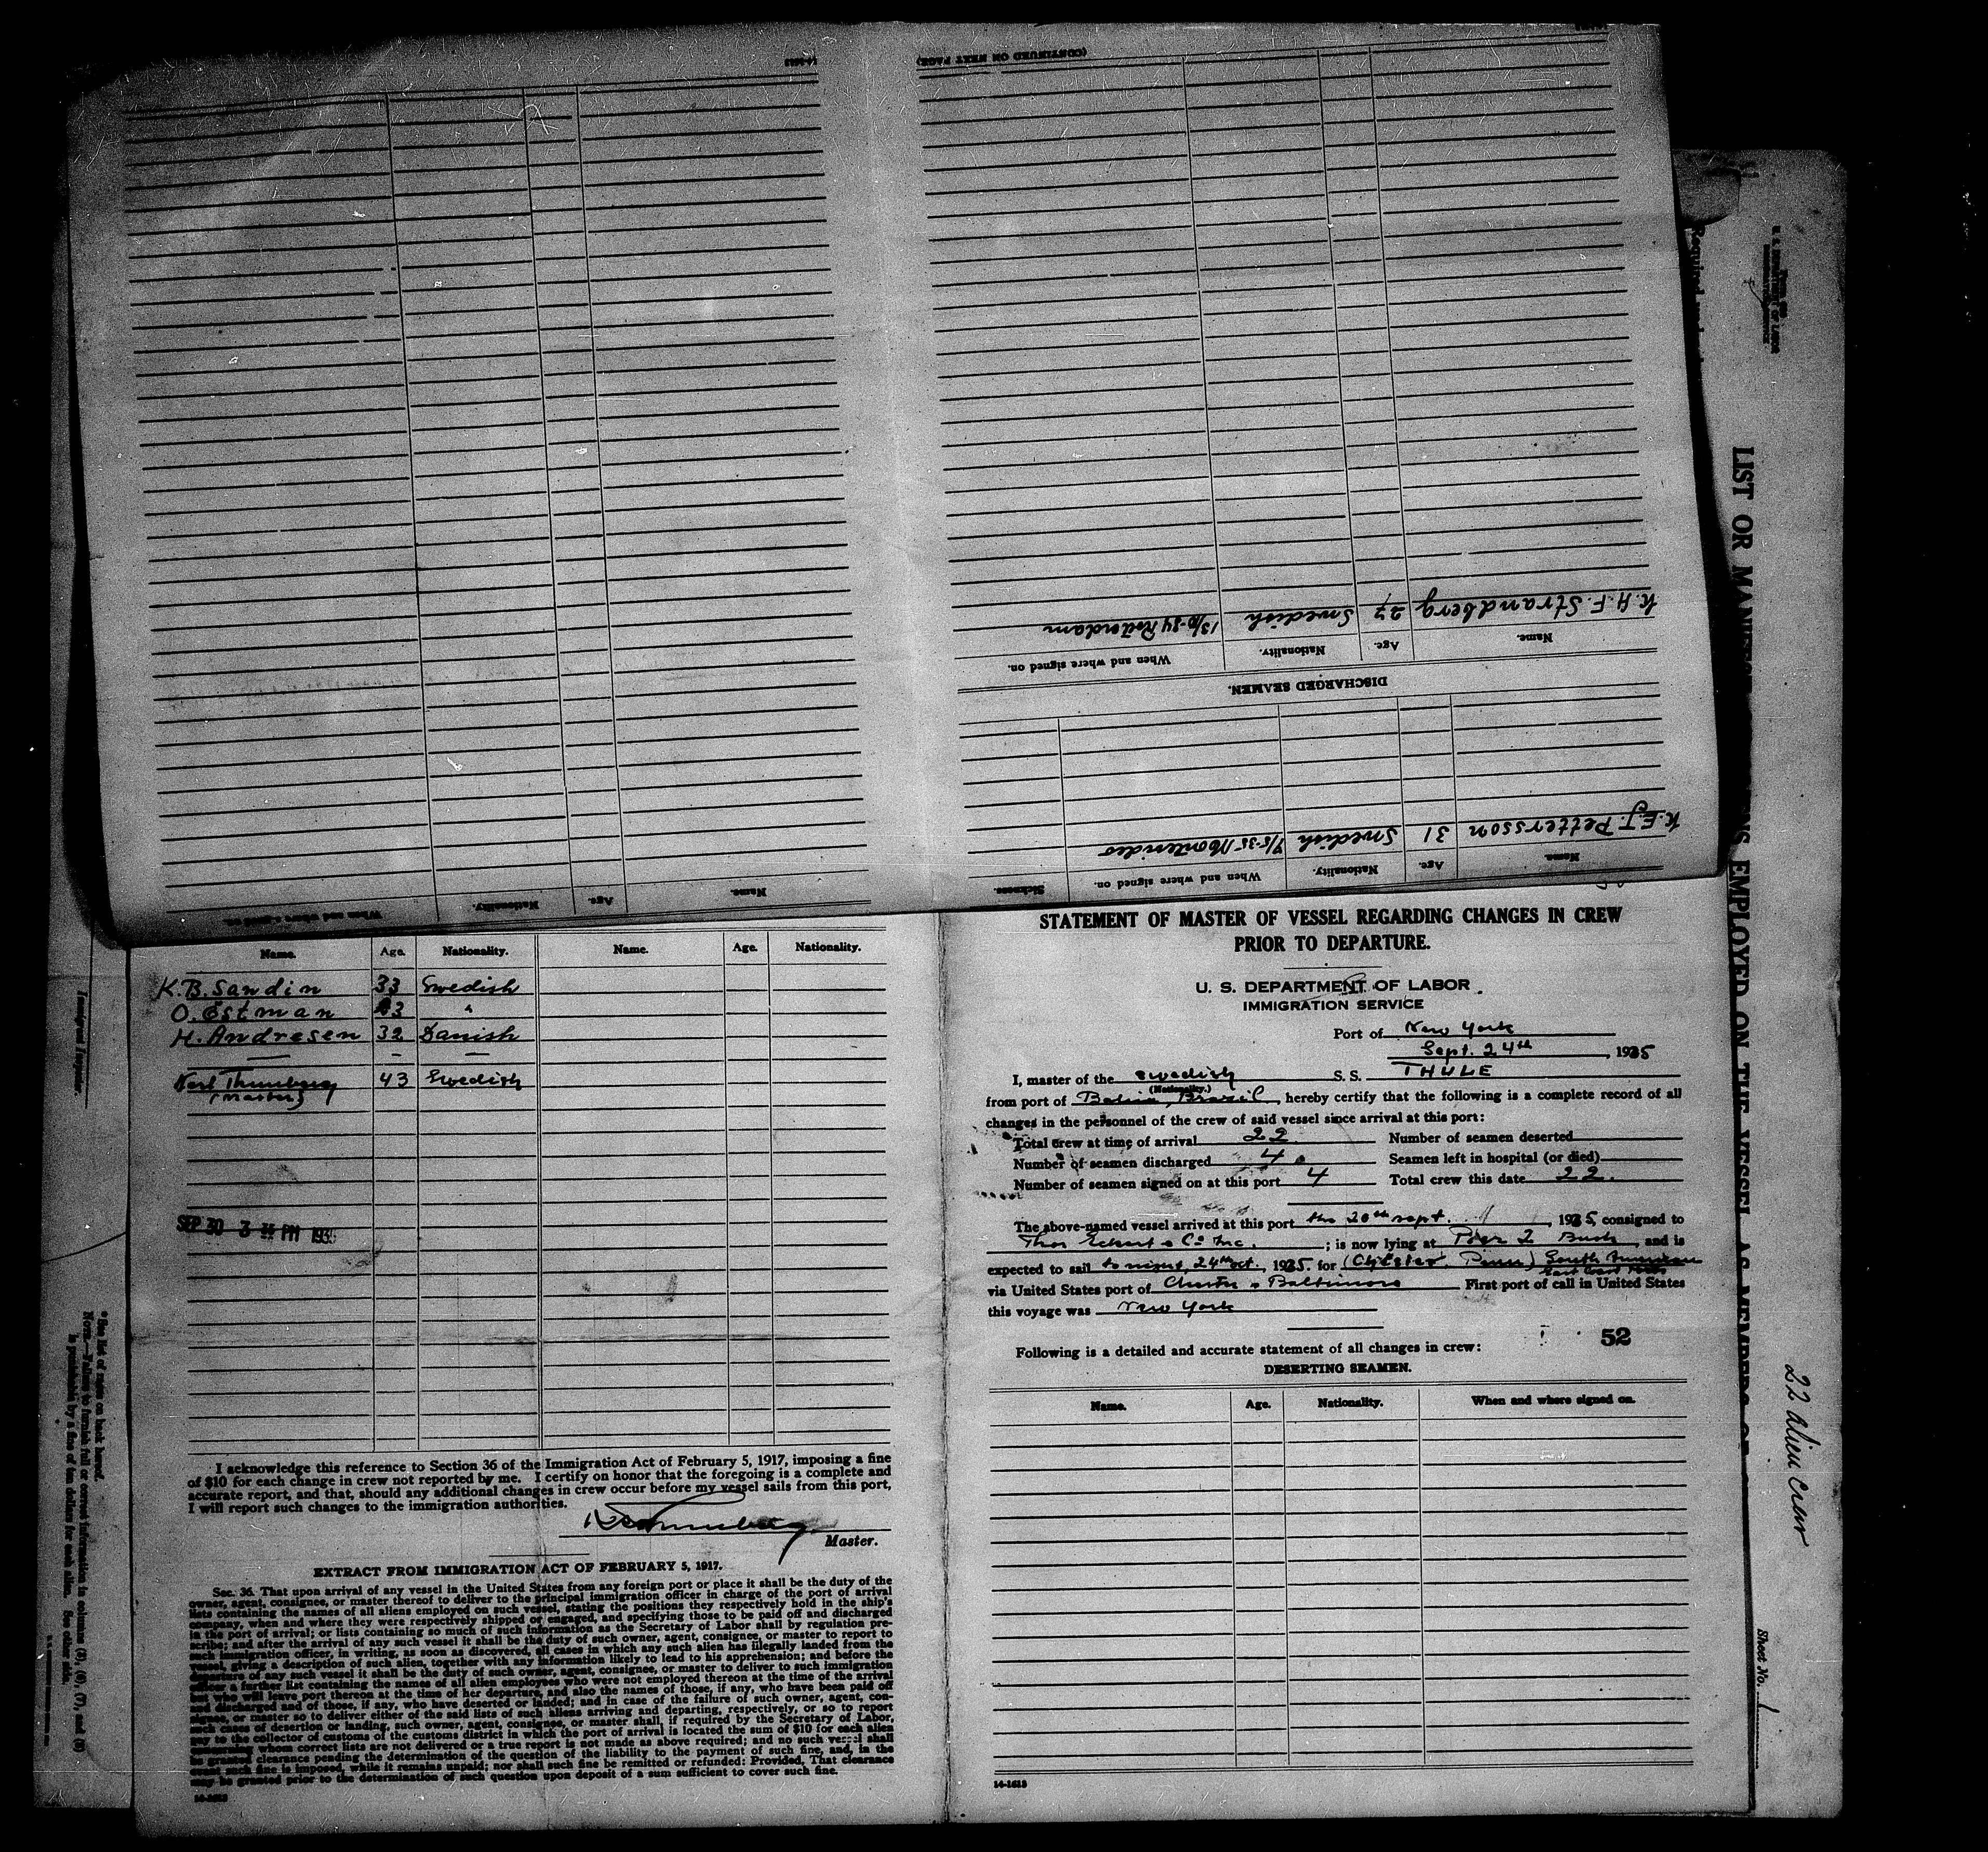 (CONTINUED ON NEXT PAGE)
14-1613
K.H.F. Strandberg 27 Swedish 13/10-34 Rotterdam
Name. Age. Nationality. When and where signed on.
DISCHARGED SEAMEN.
K.E.J. Pettersson 31 Swedish Montevideo
Name. Age. Nationality. When and where signed on. Sickness.
Name. Age. Nationality. When and where signed on.
Name. Age. Nationality. Name. Age. Nationality.
K.B. Sandin 33 Swedish
O. Östman "
H. Andresen 32 Danish
— — —
Karl Thunberg 43 Swedish
(Master)
SEP 30 3 PM 1935
I acknowledge this reference to Section 36 of the Immigration Act of February 5, 1917, imposing a fine
of $10 for each change in crew not reported by me. I certify on honor that the foregoing is a complete and
accurate report, and that, should any additional changes in crew occur before my vessel sails from this port,
I will report such changes to the immigration authorities.
Master.
EXTRACT FROM IMMIGRATION ACT OF FEBRUARY 5, 1917.
Sec. 36. That upon arrival of any vessel in the United States from any foreign port or place it shall be the duty of the
owner, agent, consignee, or master thereof to deliver to the principal immigration officer in charge of the port of arrival
lists containing the names of all aliens employed on such vessel, stating the positions they respectively hold in the ship's
company, when and where they were respectively shipped or engaged, and specifying those to be paid off and discharged
in the port of arrival; or lists containing so much of such information as the Secretary of Labor shall by regulation pre-
scribe; and after the arrival of any such vessel it shall be the duty of such owner, agent, consignee, or master to report to
such immigration officer, in writing, as soon as discovered, all cases in which any such alien has illegally landed from the
vessel, giving a description of such alien, together with any information likely to lead to his apprehension; and before the
departure of any such vessel it shall be the duty of such owner, agent, consignee, or master to deliver to such immigration
officer a further list containing the names of all alien employees who were not employed thereon at the time of the arrival
but who will leave port thereon at the time of her departure, and also the names of those, if any, who have been paid off
and discharged, and of those, if any, who have deserted or landed; and in case of the failure of such owner, agent, con-
signee, or master so to deliver either of the said lists of such aliens arriving and departing, respectively, or so to report
such cases of desertion or landing, such owner, agent, consignee, or master shall, if required by the Secretary of Labor,
pay to the collector of customs of the customs district in which the port of arrival is located the sum of $10 for each alien
concerning whom correct lists are not delivered or a true report is not made as above required; and no such vessel shall
be granted clearance pending the determination of the question of the liability to the payment of such fine, and, in the
event such fine is imposed, while it remains unpaid; nor shall such fine be remitted or refunded: Provided, That clearance
may be granted prior to the determination of such question upon deposit of a sum sufficient to cover such fine.
14-1613
STATEMENT OF MASTER OF VESSEL REGARDING CHANGES IN CREW
PRIOR TO DEPARTURE.
U. S. DEPARTMENT OF LABOR
IMMIGRATION SERVICE
Port of New York
Sept. 24th, 1935
I, master of the Swedish S. S. THULE
(Nationality.)
from port of Bahia, Brazil, hereby certify that the following is a complete record of all
changes in the personnel of the crew of said vessel since arrival at this port:
Total crew at time of arrival 22 Number of seamen deserted
Number of seamen discharged 4 Seamen left in hospital (or died)
Number of seamen signed on at this port 4 Total crew this date 22.
The above-named vessel arrived at this port the 20th sept., 1935, consigned to
Thor Eckert & Co Inc.; is now lying at Pier 2 Bush and is
expected to sail to night, 24th oct., 1935 for (Chester, Penn) South American
East Coast Ports
via United States port of Chester & Baltimore First port of call in United States
this voyage was New York
52
Following is a detailed and accurate statement of all changes in crew:
DESERTING SEAMEN.
Name. Age. Nationality. When and where signed on.
14-1613
LIST OR EMPLOYED ON THE VESSEL AS MEMBERS OF
22 Alien Crew
Sheet No. 1
Immigrant Inspector.
* See list of races on back hereof.
NOTE.—Failure to furnish full or correct information in columns (3), (6), (7), and (8)
is punishable by a fine of ten dollars for each alien. See other side.